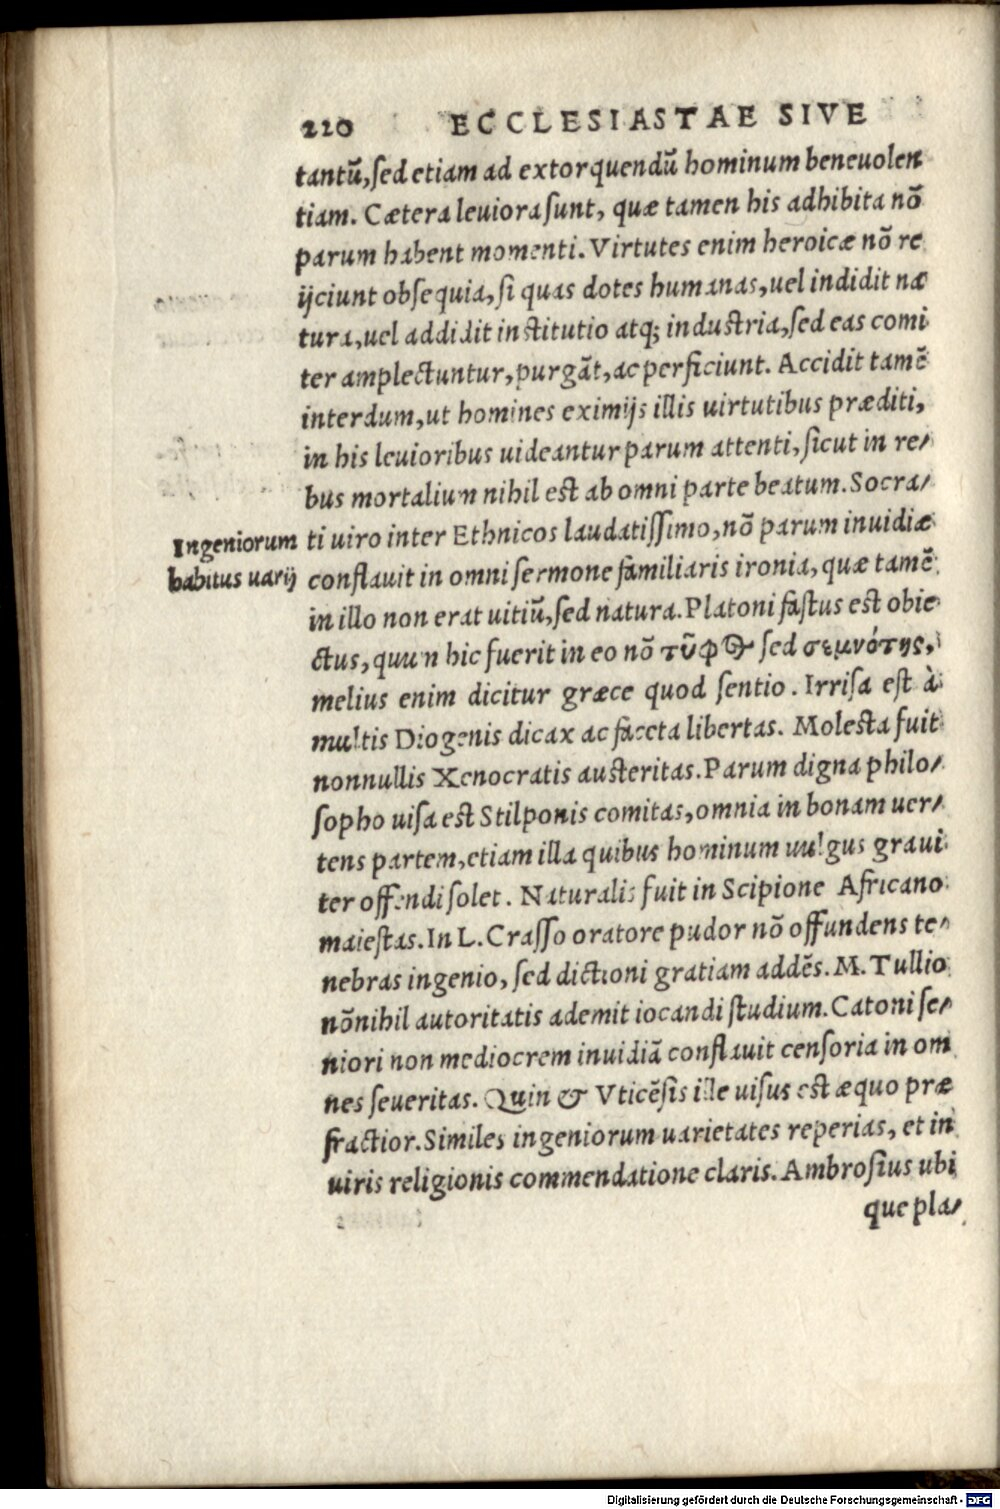 220 ECCLESIASTAE SIVE
tantũ, sed etiam ad extorquendũ hominum beneuolen
tiam. Cætera leuiora sunt, quæ tamen his adhibita nõ
parum habent momenti. Virtutes enim heroicæ nõ re
ijciunt obsequia, si quas dotes humanas, uel indidit na
tura, uel addidit institutio atq; industria, sed eas comi
ter amplectuntur, purgãt, ac perficiunt. Accidit tamẽ
interdum, ut homines eximijs illis uirtutibus præditi,
in his leuioribus uideantur parum attenti, sicut in re/
bus mortalium nihil est ab omni parte beatum. Socra/
Ingeniorum
habitus uarij
ti uiro inter Ethnicos laudatissimo, nõ parum inuidiæ
conflauit in omni sermone familiaris ironia, quæ tamẽ
in illo non erat uitiũ, sed natura. Platoni fastus est obie
ctus, quum hic fuerit in eo nõ τῦφος sed σεμνότης,
melius enim dicitur græce quod sentio. Irrisa est à
multis Diogenis dicax ac faceta libertas. Molesta fuit
nonnullis Xenocratis austeritas. Parum digna philo/
sopho uisa est Stilponis comitas, omnia in bonam uer/
tens partem, etiam illa quibus hominum uulgus graui
ter offendi solet. Naturalis fuit in Scipione Africano
maiestas. In L. Crasso oratore pudor nõ offundens te/
nebras ingenio, sed dictioni gratiam addẽs. M. Tullio
nõnihil autoritatis ademit iocandi studium. Catoni se/
niori non mediocrem inuidiã conflauit censoria in om
nes seueritas. Quin & Vticẽsis ille uisus est æquo præ
fractior. Similes ingeniorum uarietates reperias, et in
uiris religionis commendatione claris. Ambrosius ubi
que pla/
Digitalisierung gefördert durch die Deutsche Forschungsgemeinschaft - DFG